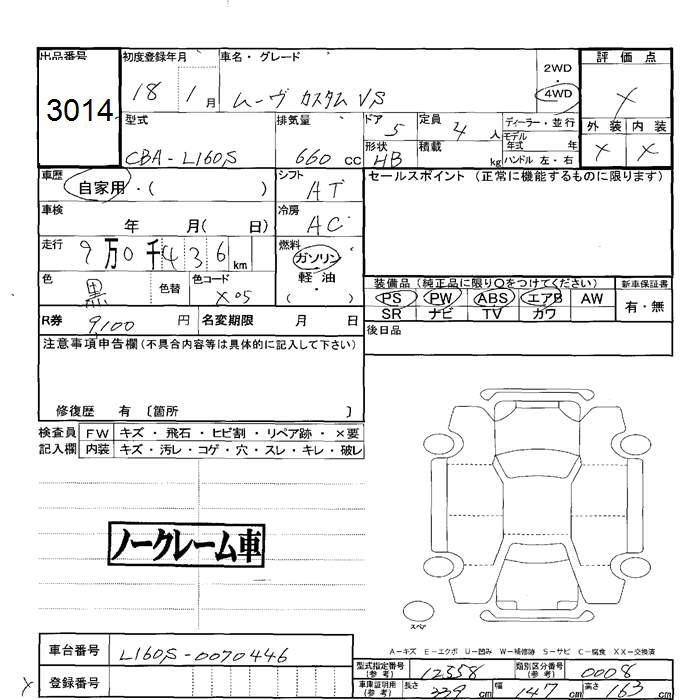 出品番号 初度登録年月 車名・グレード 2WD 評価点
3014 18 1月 ムーヴ カスタム VS 4WD X
型式 排気量 ドア 定員 ディーラー・並行 外装 内装
CBA-L160S 660cc 5 4人 モデル年式 年 X X
形状 HB 積載 kg ハンドル 左・右
車歴 自家用・( ) シフト AT セールスポイント (正常に機能するものに限ります)
車検 年 月( 日) 冷房 AC
走行 9万0千436km 燃料 ガソリン
軽油
( )
色 黒 色替 色コード X05
装備品 (純正品に限り○をつけてください) 新車保証書
PS PW ABS エアB AW 有・無
SR ナビ TV カワ
R券 9,100円 名変期限 月 日
後日品
注意事項申告欄(不具合内容等は具体的に記入して下さい)
修復歴 有 〔箇所 〕
検査員 FW キズ・飛石・ヒビ割・リペア跡・×要
記入欄 内装 キズ・汚レ・コゲ・穴・スレ・キレ・破レ
ノークレーム車
スペア
A-キズ E-エクボ U-凹み W-補修跡 S-サビ C-腐食 XX-交換済
車台番号 L160S-0070446
登録番号
型式指定番号(参考) 12558 類別区分番号(参考) 0008
車庫証明用(参考) 長さ 339cm 幅 147cm 高さ 163cm